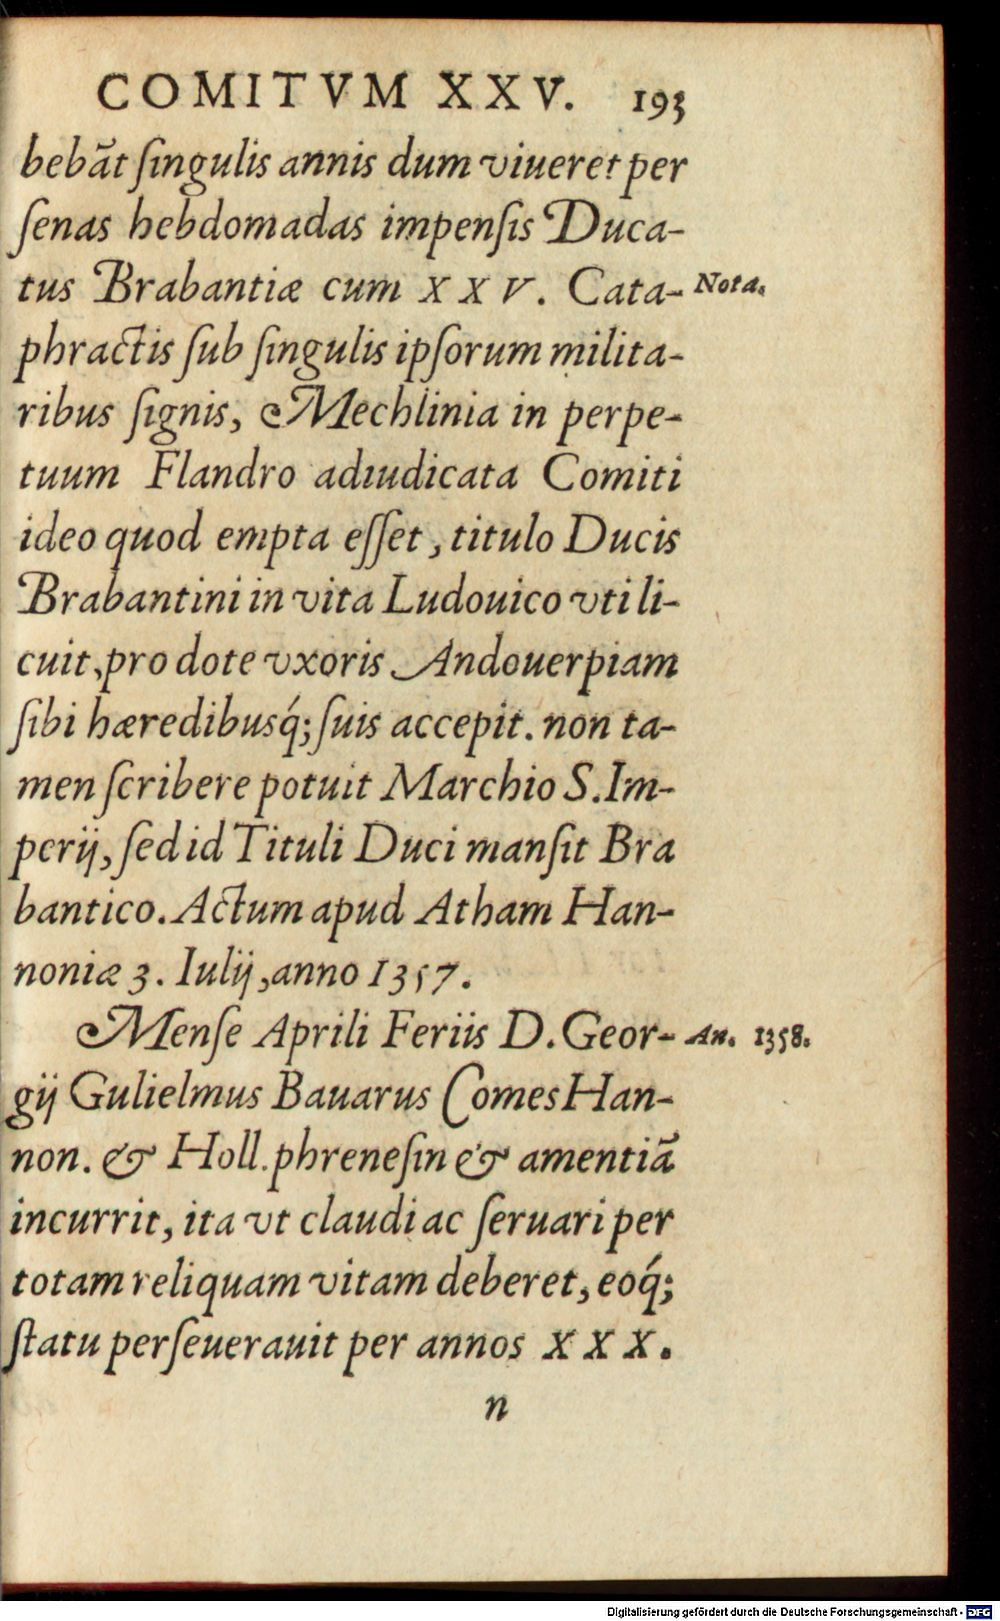 COMITVM XXV. 193
bebāt ſingulis annis dum viueret per
ſenas hebdomadas impenſis Duca-
tus Brabantiæ cum XXV. Cata- Nota.
phractis ſub ſingulis ipſorum milita-
ribus ſignis, Mechlinia in perpe-
tuum Flandro adiudicata Comiti
ideo quod empta eſſet, titulo Ducis
Brabantini in vita Ludouico vti li-
cuit, pro dote vxoris Andouerpiam
ſibi hæredibusq́; ſuis accepit. non ta-
men ſcribere potuit Marchio S. Im-
perij, ſed id Tituli Duci manſit Bra
bantico. Actum apud Atham Han-
noniæ 3. Iulij, anno 1357.
Menſe Aprili Feriis D. Geor- An. 1358.
gij Gulielmus Bauarus Comes Han-
non. & Holl. phreneſin & amentiā
incurrit, ita vt claudi ac ſeruari per
totam reliquam vitam deberet, eoq́;
ſtatu perſeuerauit per annos XXX.
n
Digitalisierung gefördert durch die Deutsche Forschungsgemeinschaft - DFG